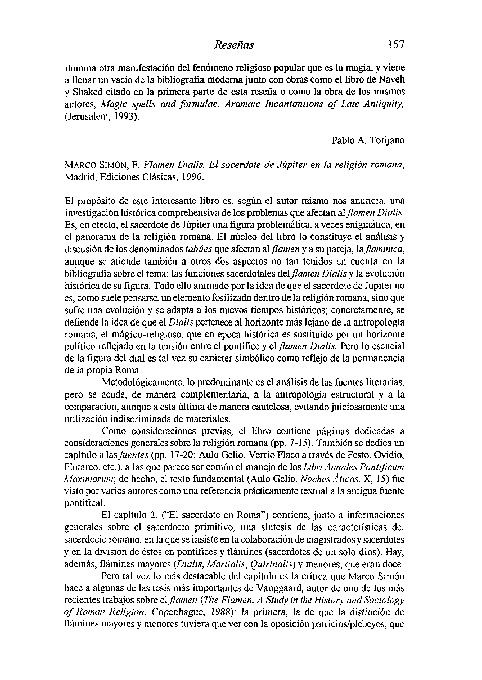 Reseñas 357
ilumina otra manifestación del fenómeno religioso popular que es la magia, y viene
a llenar un vacío de la bibliografía moderna junto con obras como el libro de Naveh
y Shaked citado en la primera parte de esta reseña o como la obra de los mismos
autores, Magic spells and formulae. Aramaic Incantantions of Late Antiquity,
(Jerusalem, 1993).
Pablo A. Torijano
MARCO SIMÓN, F. Flamen Dialis. El sacerdote de Júpiter en la religión romana,
Madrid, Ediciones Clásicas, 1996.
El propósito de este interesante libro es, según el autor mismo nos anuncia, una
investigación histórica comprehensiva de los problemas que afectan al flamen Dialis.
Es, en efecto, el sacerdote de Júpiter una figura problemática, a veces enigmática, en
el panorama de la religión romana. El núcleo del libro lo constituye el análisis y
discusión de los denominados tabúes que afectan al flamen y a su pareja, la flaminica,
aunque se atiende también a otros dos aspectos no tan tenidos en cuenta en la
bibliografía sobre el tema: las funciones sacerdotales del flamen Dialis y la evolución
histórica de su figura. Todo ello animado por la idea de que el sacerdote de Júpiter no
es, como suele pensarse, un elemento fosilizado dentro de la religión romana, sino que
sufre una evolución y se adapta a los nuevos tiempos históricos; concretamente, se
defiende la idea de que el Dialis pertenece al horizonte más lejano de la antropología
romana, el mágico-religioso, que en época histórica es sustituido por un horizonte
político reflejado en la tensión entre el pontífice y el flamen Dialis. Pero lo esencial
de la figura del dial es tal vez su carácter simbólico como reflejo de la permanencia
de la propia Roma.
Metodológicamente, lo predominante es el análisis de las fuentes literarias,
pero se acude, de manera complementaria, a la antropología estructural y a la
comparación, aunque a esta última de manera cautelosa, evitando juiciosamente una
utilización indiscriminada de materiales.
Como consideraciones previas, el libro contiene páginas dedicadas a
consideraciones generales sobre la religión romana (pp. 7-15). También se dedica un
capítulo a las fuentes (pp. 17-20: Aulo Gelio, Verrio Flaco a través de Festo, Ovidio,
Plutarco, etc.), a las que parece ser común el manejo de los Libri Annales Pontificum
Maximorum; de hecho, el texto fundamental (Aulo Gelio, Noches Áticas, X, 15) fue
visto por varios autores como una referencia prácticamente textual a la antigua fuente
pontifical.
El capítulo 2. ("El sacerdote en Roma") contiene, junto a informaciones
generales sobre el sacerdocio primitivo, una síntesis de las características del
sacerdocio romano, en la que se insiste en la colaboración de magistrados y sacerdotes
y en la división de éstos en pontífices y flámines (sacerdotes de un solo dios). Hay,
además, flámines mayores (Dialis, Martialis, Quirinalis) y menores, que eran doce.
Pero tal vez lo más destacable del capítulo es la crítica que Marco Simón
hace a algunas de las tesis más importantes de Vanggaard, autor de uno de los más
recientes trabajos sobre el flamen (The Flamen. A Study in the History and Sociology
of Roman Religion, Copenhague, 1988): la primera, la de que la distinción de
flámines mayores y menores tuviera que ver con la oposición patricios/plebeyos, que